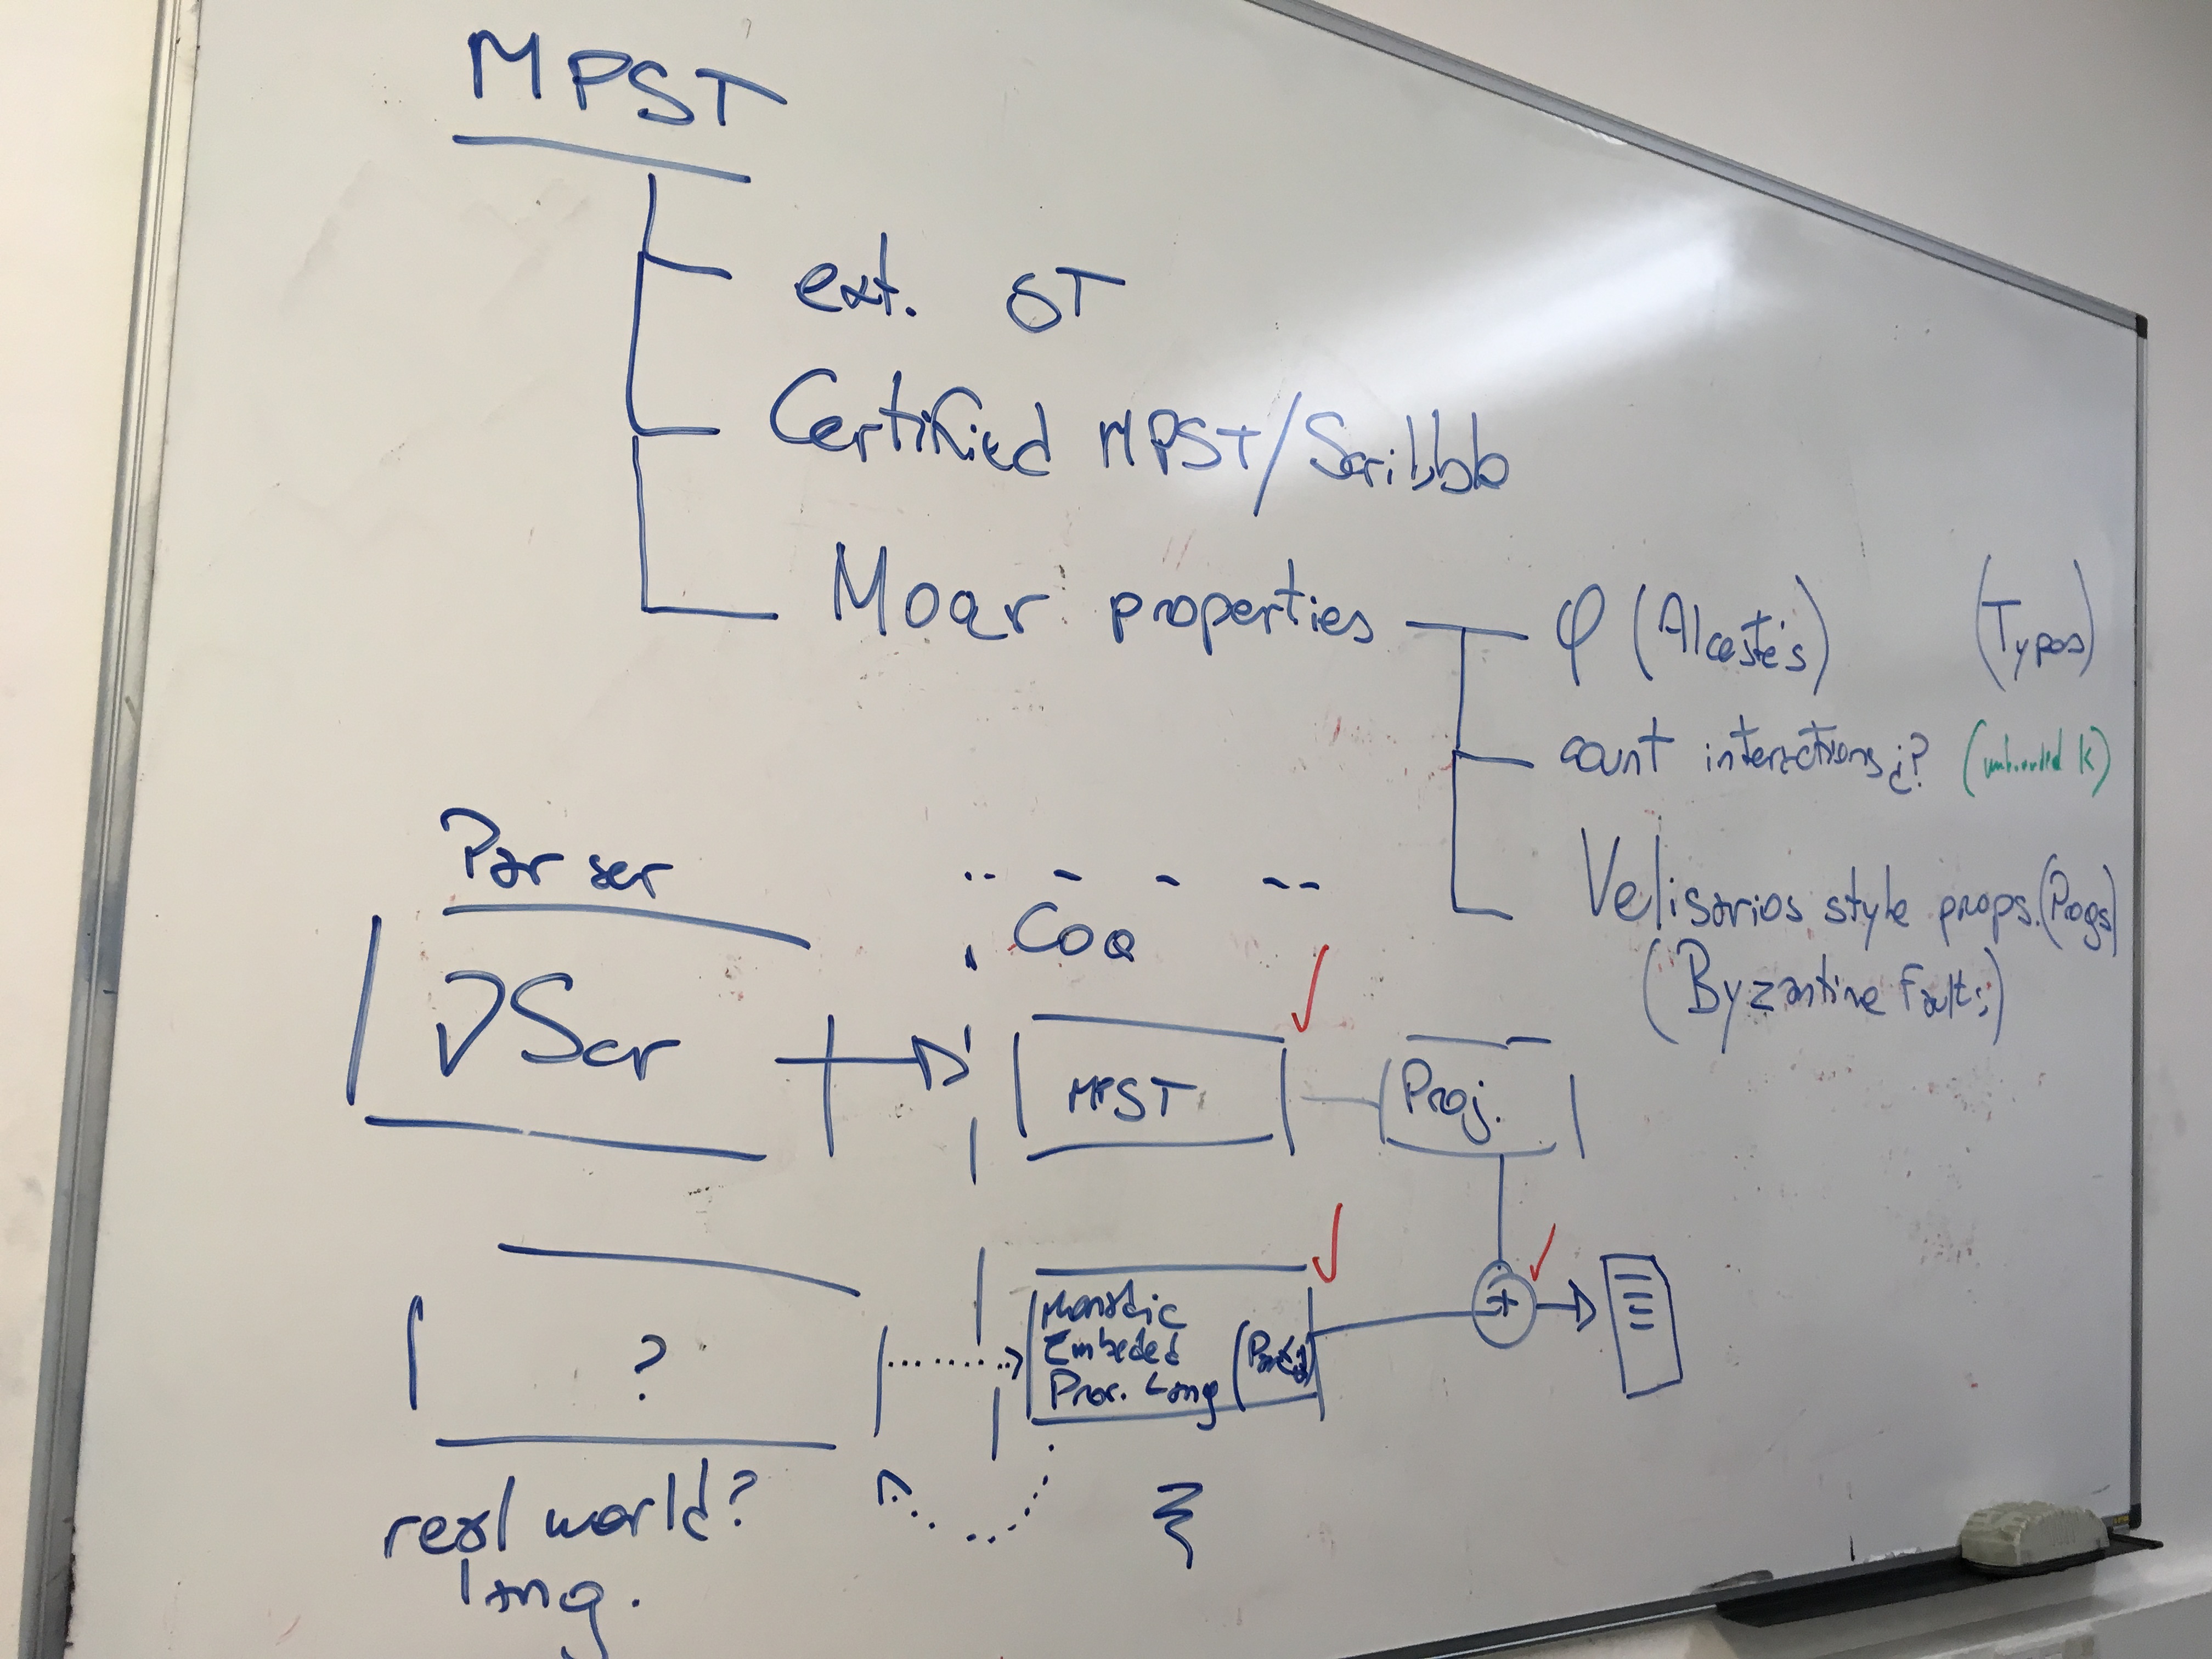 MPST
ext. ST
Certified MPST/Scribbb
Moar properties
φ (Alceste's) (Typos)
count interactions¿? (unbounded K)
Velisarios style props. (Progs)
(Byzantine Faults)
Parser
Coq
νScr
MPST
Proj.
Monadic
Embeded
Pror. Lang
+
?
real world?
lang.